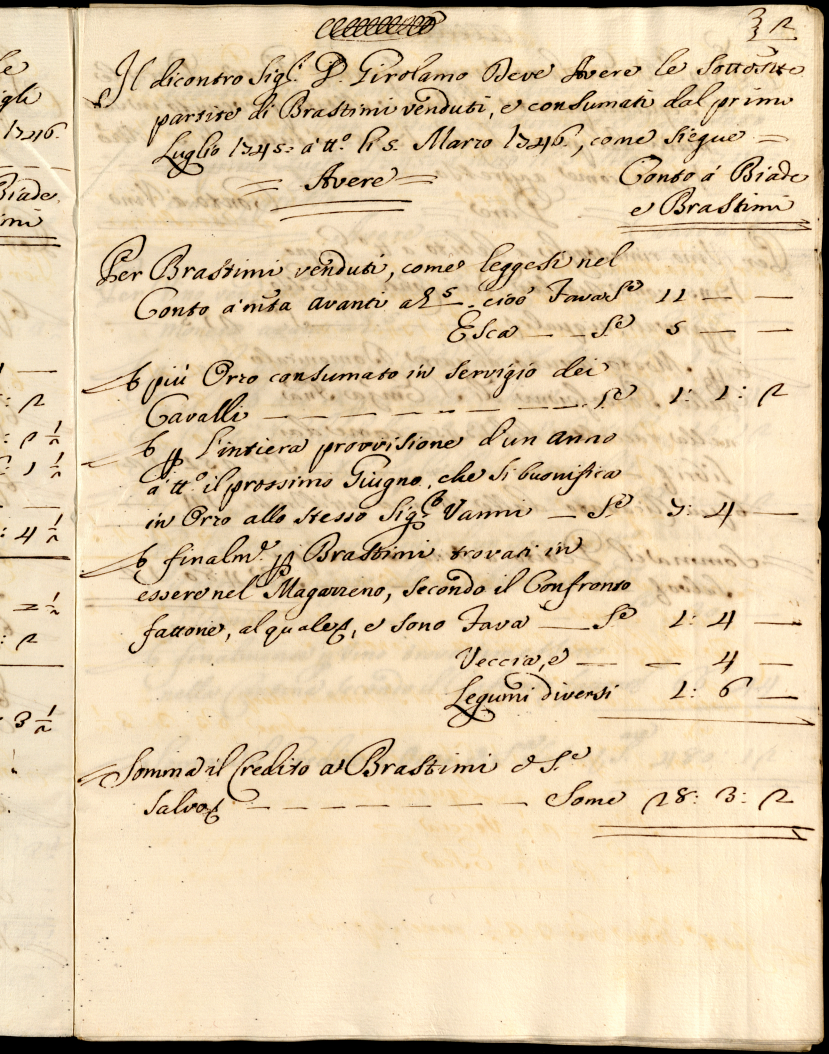 le
igli
1746.
Biade
imi
: 2
: 2 1/2
: 1 1/2
: 4 1/2
= 1/2
: 2
: 3 1/2
32
Il dicontro Sig.r D. Girolamo Deve Avere le Sottos.te
partite di Brastimi venduti, e consumati dal primo
Luglio 1745. a tt.o li 5. Marzo 1746., come siegue =
= Avere =
Conto a' Biade
e Brastimi
Per Brastimi venduti, come leggesi nel
Conto a' nita avanti a 5. cioè Fava S.e 11 — —
Esca — — S.e 5 — —
E più Orzo consumato in servigio dei
Cavalli — — — — — — S.e 1: 1: 2
E p l'intiera provvisione d'un anno
a tt.o il prossimo Giugno, che si buonifica
in Orzo allo stesso Sig.r Vanni — S.e 7: 4 —
E finalm.e p Brastimi trovati in
essere nel Magazzeno, secondo il Confronto
fattone, al quale, e sono Fava — S.e 1: 4 —
Veccia, e — — 4 —
Legumi diversi 1: 6 —
Somma il Credito a' Brastimi e S.e
Salvo — — — — — — Some 28: 3: 2